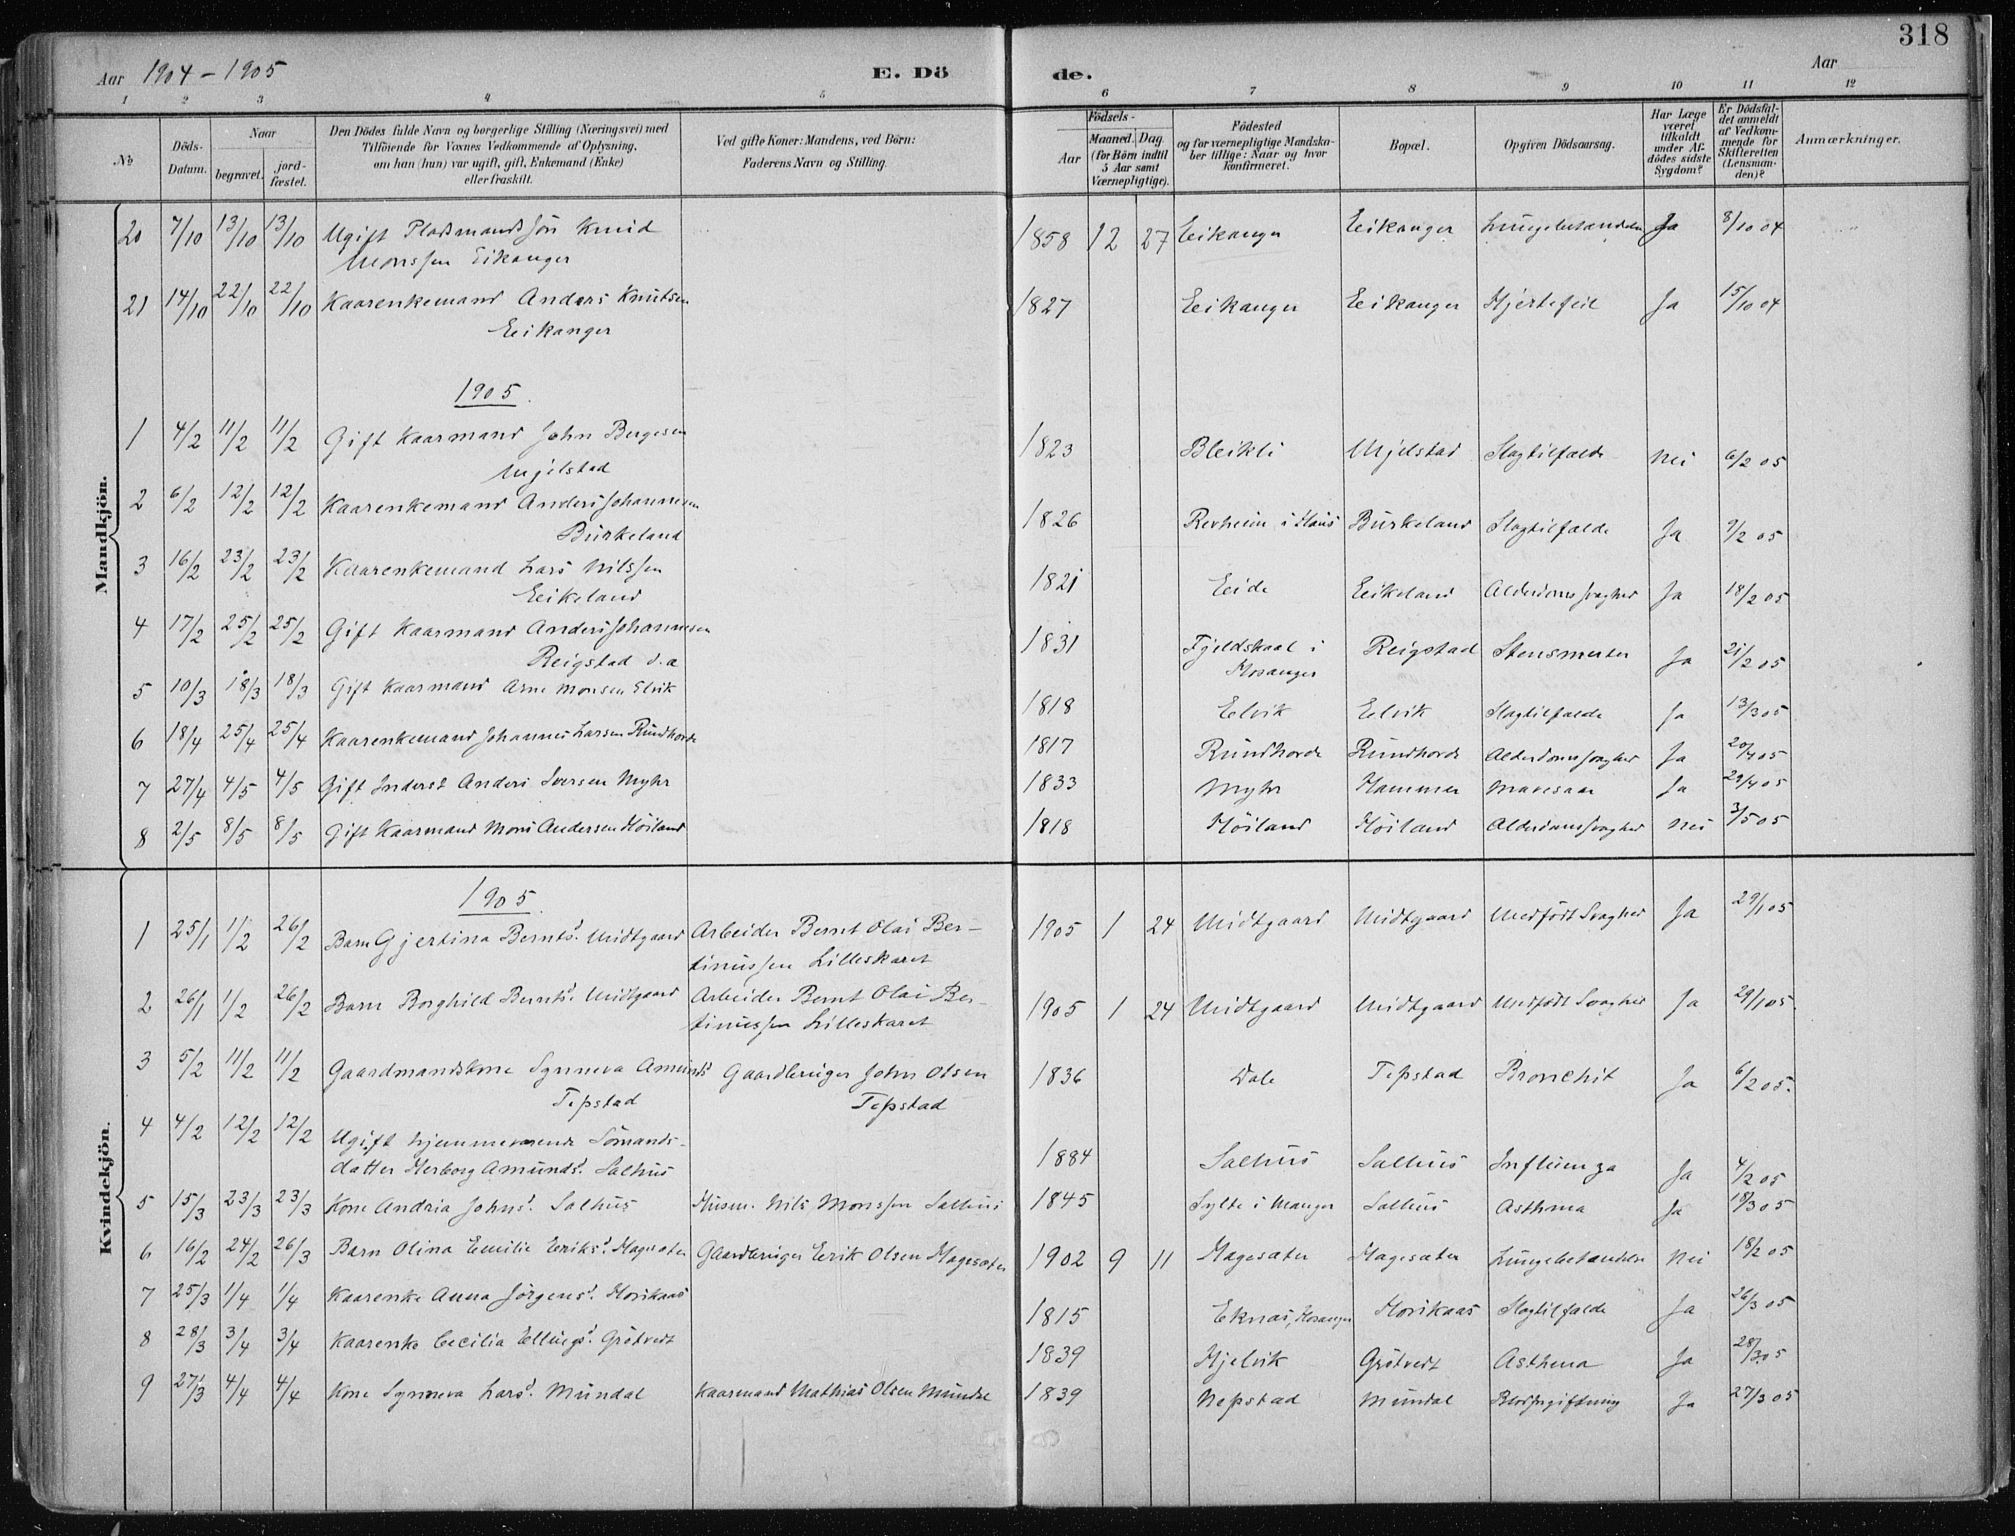 318
Aar 1904 - 1905 E. Dö de. Aar
1 2 3 4 5 6 7 8 9 10 11 12
No
Döds-Datum.
Naar
begravet.
jord-fæstet.
Den Dödes fulde Navn og borgerlige Stilling (Næringsvei) med
Tilföiende for Voxnes Vedkommende af Oplysning,
om han (hun) var ugift, gift, Enkemand (Enke)
eller fraskilt.
Ved gifte Koner: Mandens, ved Börn:
Faderens Navn og Stilling.
Födsels-
Aar
Maaned. Dag
(for Börn indtil
5 Aar samt
Værnepligtige).
Födested
og for værnepligtige Mandska-
ber tillige: Naar og hvor
konfirmeret.
Bopæl.
Opgiven Dödsaarsag.
Har Læge
været
tilkaldt
under Af-
dödes sidste
Sygdom?
Er Dödsfal-
det anmeldt
af Vedkom-
mende for
Skifteretten
(Lensman-
den)?
Anmærkninger.
Mandkjön.
20 7/10 13/10 13/10 Ugift Pladsmandssön Knud 1858 12 27 Eikanger Eikanger Lungebetændelse Ja 8/10 04
Monssen Eikanger
21 14/10 22/10 22/10 Kaarenkemand Anders Knutsen 1827 Eeikanger Eeikanger Hjertefeil Ja 15/10 04
Eeikanger
1905.
1 4/2 11/2 11/2 Gift Kaarmand John Bergesen 1823 Bleikli Mjelstad Slagtilfælde Nei 6/2 05
Mjelstad
2 6/2 12/2 12/2 Kaarenkemand Anders Johannesen 1826 Revheim i Haus Burkeland Slagtilfælde Ja 9/2 05
Burkeland
3 16/2 23/2 23/2 Kaarenkemand Lars Nilssen 1821 Eide Eeikeland Alderdomssvaghed Ja 18/2 05
Eeikeland
4 17/2 25/2 25/2 Gift Kaarmand Anders Johannesen 1831 Fjeldskaal i Reigstad Stensmerter Ja 21/2 05
Reigstad d.a Hosanger
5 10/3 18/3 18/3 Gift Kaarmand Arne Monsen Elvik 1818 Eelvik Eelvik Slagtilfælde Ja 13/3 05
6 18/4 25/4 25/4 Kaarenkemand Johannes Larsen Rundhovde 1817 Rundhovde Rundhovde Alderdomssvaghed Ja 20/4 05
7 27/4 4/5 4/5 Gift Inderst Anders Iversen Myhr 1833 Myhr Hammer Mavesaar Ja 29/4 05
8 2/5 8/5 8/5 Gift Kaarmand Mons Andersen Höiland 1818 Höiland Höiland Alderdomssvaghed Nei 3/5 05
Kvindekjön.
1905.
1 25/1 1/2 26/2 Barn Gjertina Bernts. Midtgaard Arbeider Bernt Olai Ber- 1905 1 24 Midtgaard Midtgaard Medfödt Svaghed Ja 29/1 05
tinussen Lilleskaret
2 26/1 1/2 26/2 Barn Borghild Bernts. Midtgaard Arbeider Bernt Olai Ber- 1905 1 24 Midtgaard Midtgaard Medfödt Svaghed Ja 29/1 05.
tinussen Lilleskaret
3 5/2 11/2 11/2 Gaardmandskone Synneva Amunds Gaardbruger John Olsen 1836 Dale Tepstad Bronchit Ja 6/2 05.
Tepstad Tepstad
4 4/2 12/2 12/2 Ugift hjemmeværende Sömands-
datter Herborg Amunds. Salhus 1884 Salhus Salhus Influenza Ja 4/2 05
5 15/3 23/3 23/3 Kone Andria Johns. Salhus Husm. Nils Monssen Salhus 1845 Sylte i Manger Salhus Asthma Ja 18/3 05
6 16/2 24/2 26/3 Barn Olina Emilie Eeriks. Hagesæter Gaardbruger Eerik Olsen Hagesæter 1902 9 11 Hagesæter Hagesæter Lungebetændelse Nei 18/2 05
7 25/3 1/4 1/4 Kaarenke Anna Jörgens. Horikaas 1815 Eknas, Hosanger Horikaas Slagtilfælde Ja 26/3 05
8 28/3 3/4 3/4 Kaarenke Cecilia Ellings. Grötvedt 1839 Hjelvik Grötvedt Asthma Ja 28/3 05
9 27/3 4/4 4/4 Kone Synneva Lars. Mundal Kaarmand Mathias Olsen Mundal 1839 Nepstad Mundal Blodforgiftning Ja 27/3 05